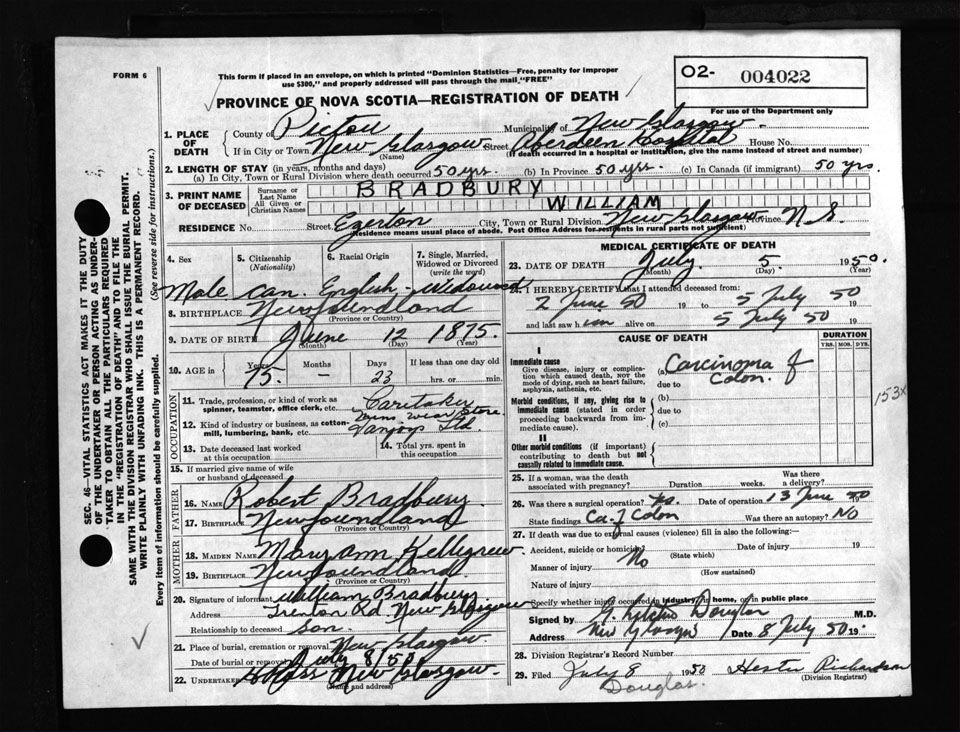 FORM 6
This form if placed in an envelope, on which is printed "Dominion Statistics—Free, penalty for improper
use $300," and properly addressed will pass through the mail "FREE"
O2- 004022
For use of the Department only
PROVINCE OF NOVA SCOTIA—REGISTRATION OF DEATH
1. PLACE OF DEATH
County of Pictou Municipality of New Glasgow
If in City or Town New Glasgow Street Aberdeen Hospital House No.
(Name) (If death occurred in a hospital or institution, give the name instead of street and number)
2. LENGTH OF STAY (in years, months and days)
(a) In City, Town or Rural Division where death occurred 50 yrs. (b) In Province 50 yrs. (c) In Canada (if immigrant) 50 yrs.
3. PRINT NAME OF DECEASED
Surname or Last Name BRADBURY
All Given or Christian Names WILLIAM
RESIDENCE No. Street Egerton City, Town or Rural Division New Glasgow Province N.S.
(Residence means usual place of abode. Post Office Address for residents in rural parts not sufficient)
4. Sex
5. Citizenship (Nationality)
6. Racial Origin
7. Single, Married, Widowed or Divorced (write the word)
Male Can. English - Widowed
8. BIRTHPLACE Newfoundland
(Province or Country)
9. DATE OF BIRTH June 12 1875
(Month) (Day) (Year)
10. AGE in Years Months Days If less than one day old
75 - 23 hrs. or min.
OCCUPATION
11. Trade, profession, or kind of work as spinner, teamster, office clerk, etc. Caretaker
12. Kind of industry or business, as cotton-mill, lumbering, bank, etc. Mens Wear Store
Ltd
13. Date deceased last worked at this occupation
14. Total yrs. spent in this occupation
15. If married give name of wife or husband of deceased
FATHER
16. NAME Robert Bradbury
17. BIRTHPLACE Newfoundland
(Province or Country)
MOTHER
18. MAIDEN NAME Mary Ann Kelligrew
19. BIRTHPLACE Newfoundland
(Province or Country)
20. Signature of informant William Bradbury
Address Trenton Rd New Glasgow
Relationship to deceased Son.
21. Place of burial, cremation or removal New Glasgow
Date of burial or removal July 8/50
22. UNDERTAKER New Glasgow.
(Name and address)
MEDICAL CERTIFICATE OF DEATH
23. DATE OF DEATH July 5 1950.
(Month) (Day) (Year)
24. I HEREBY CERTIFY that I attended deceased from:
2 June 50 19 to 5 July 50 19
and last saw him alive on 5 July 50 19
CAUSE OF DEATH
DURATION
YRS. MOS. DYS.
I
Immediate cause
Give disease, injury or complication which caused death, not the mode of dying, such as heart failure, asphyxia, asthenia, etc.
(a) Carcinoma of
due to Colon.
153x
Morbid conditions, if any, giving rise to immediate cause (stated in order proceeding backwards from immediate cause).
(b)
due to
(c)
II
Other morbid conditions (if important) contributing to death but not causally related to immediate cause.
25. If a woman, was the death associated with pregnancy? Duration weeks. Was there a delivery?
26. Was there a surgical operation? Yes. Date of operation 13 June 50 19
State findings Ca. of Colon Was there an autopsy? NO
27. If death was due to external causes (violence) fill in also the following:
Accident, suicide or homicide? No Date of injury 19
(State which)
Manner of injury
(How sustained)
Nature of injury
Specify whether injury occurred in industry, in home, or in public place
Signed by Douglas M.D.
Address New Glasgow Date 8 July 50 19
28. Division Registrar's Record Number
29. Filed July 8 1950 Hester Richardson
(Division Registrar)
Douglas.
SEC. 46—VITAL STATISTICS ACT MAKES IT THE DUTY
OF THE UNDERTAKER OR PERSON ACTING AS UNDER-
TAKER TO OBTAIN ALL THE PARTICULARS REQUIRED
IN THE "REGISTRATION OF DEATH" AND TO FILE THE
SAME WITH THE DIVISION REGISTRAR WHO SHALL ISSUE THE BURIAL PERMIT.
WRITE PLAINLY WITH UNFADING INK. THIS IS A PERMANENT RECORD.
Every item of information should be carefully supplied. (See reverse side for instructions.)